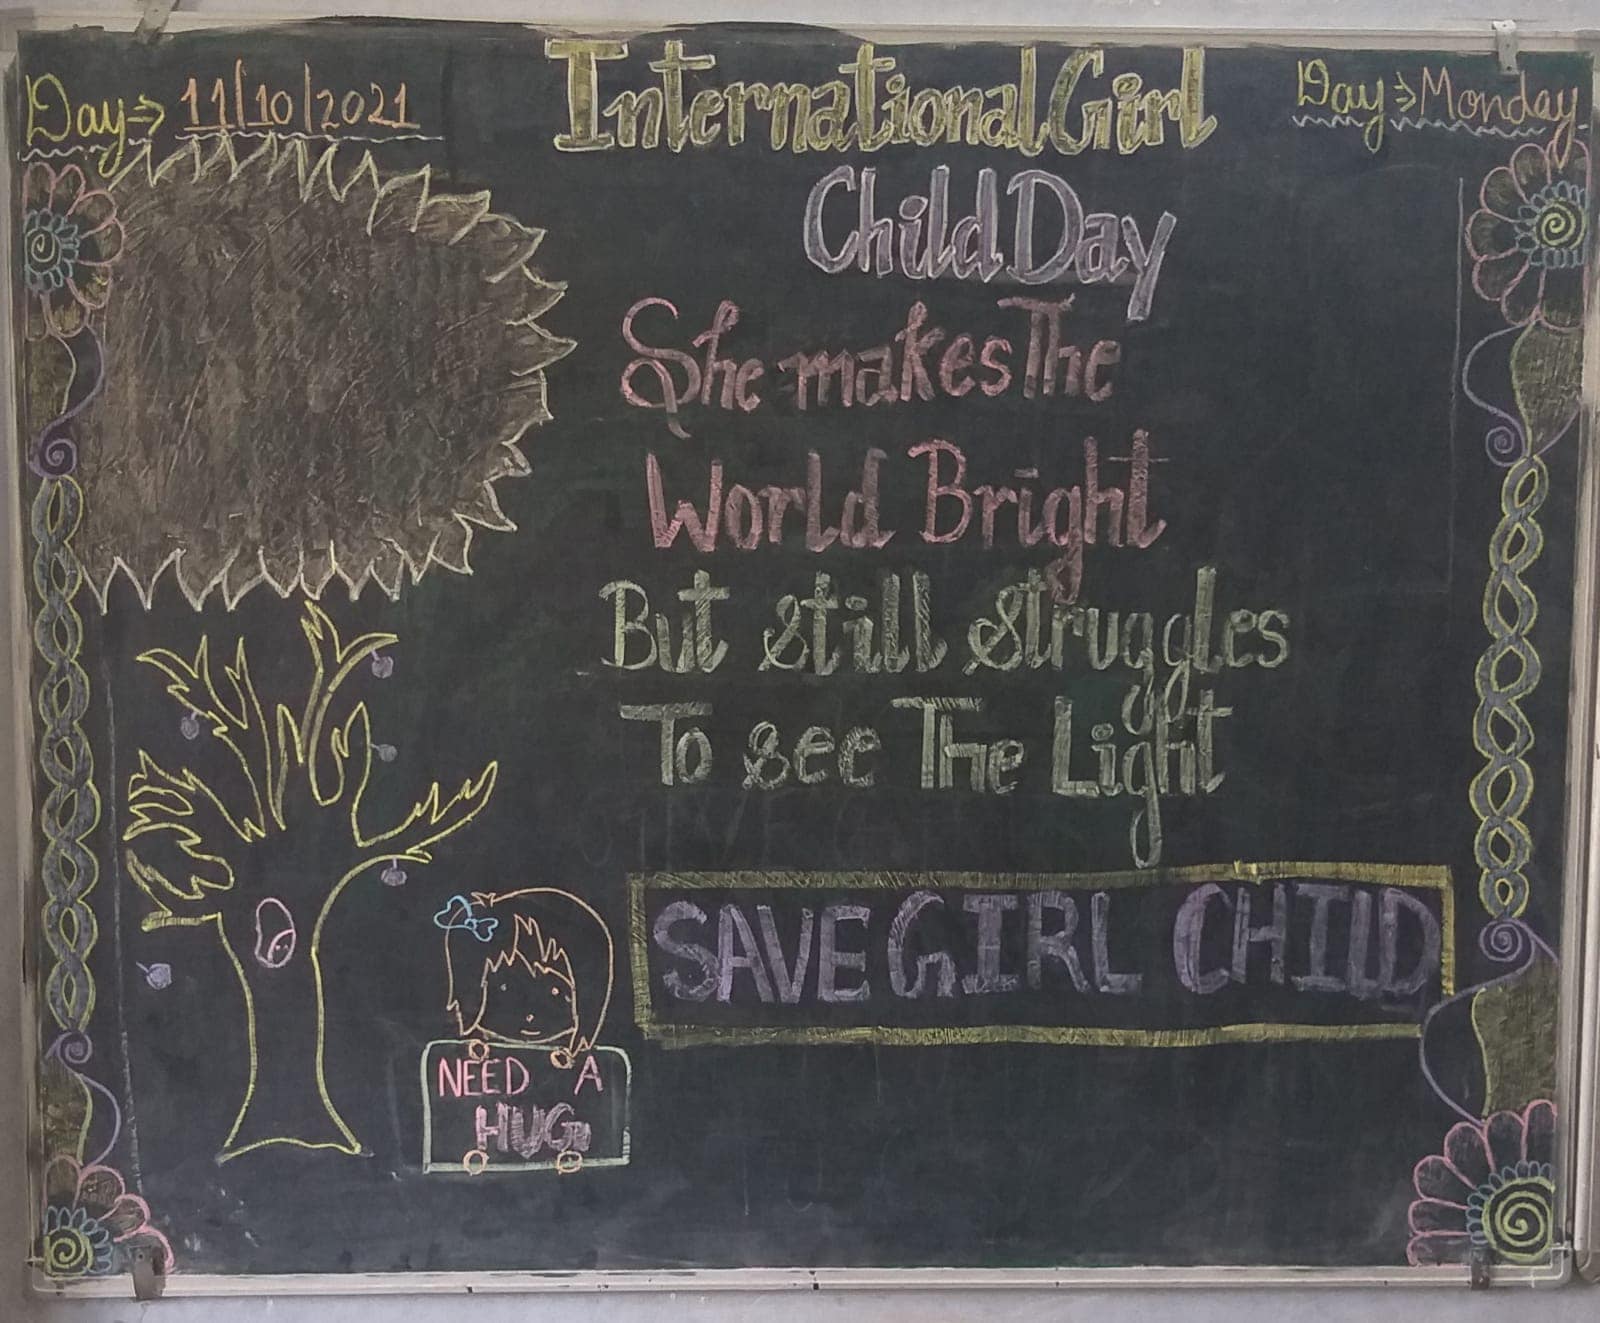 Day → 11/10/2021
International Girl
Day → Monday
Child Day
She makes The
World Bright
But still struggles
To see The Light
SAVE GIRL CHILD
NEED A
HUG